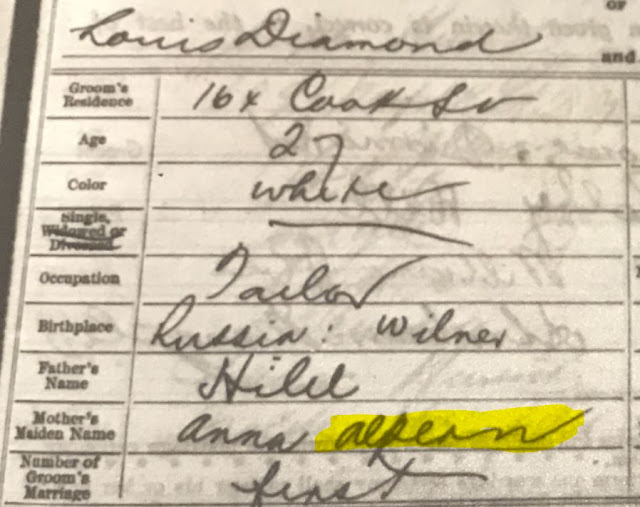 or
Louis Diamond
and
Groom's Residence 164 Cook St
Age 27
Color White
Single, Widowed or Divorced
Occupation Tailor
Birthplace Russia: Wilner
Father's Name Hilel
Mother's Maiden Name Anna Alpern
Number of Groom's Marriage first